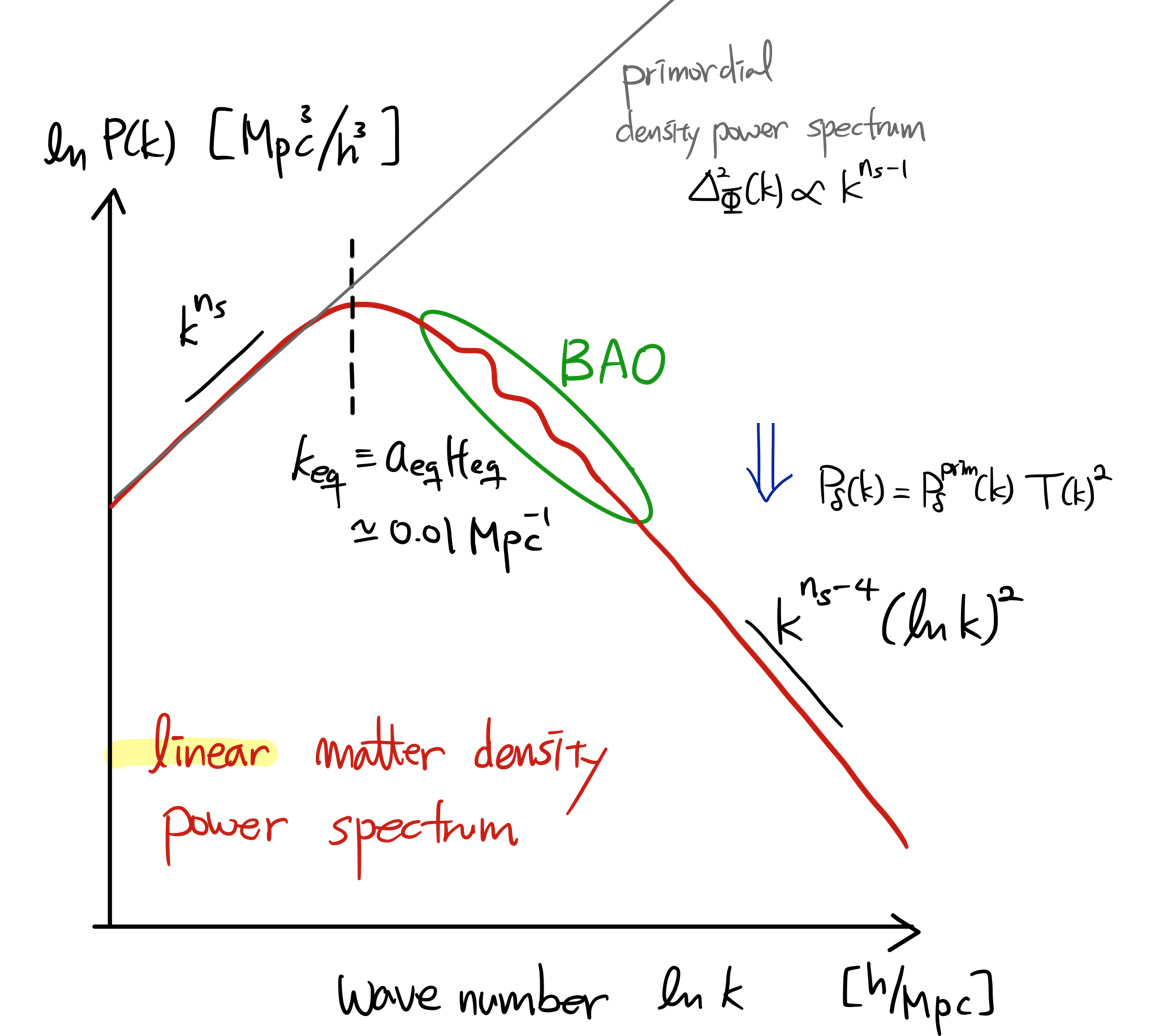 ln P(k) [Mpc³/h³]
primordial
density power spectrum
Δ²_Φ(k) ∝ k^{n_s-1}
k^{n_s}
BAO
k_eq ≡ a_eq H_eq
≃ 0.01 Mpc⁻¹
P_δ(k) = P_δ^{prim}(k) T(k)²
k^{n_s-4} (ln k)²
linear matter density
power spectrum
wave number ln k [h/Mpc]